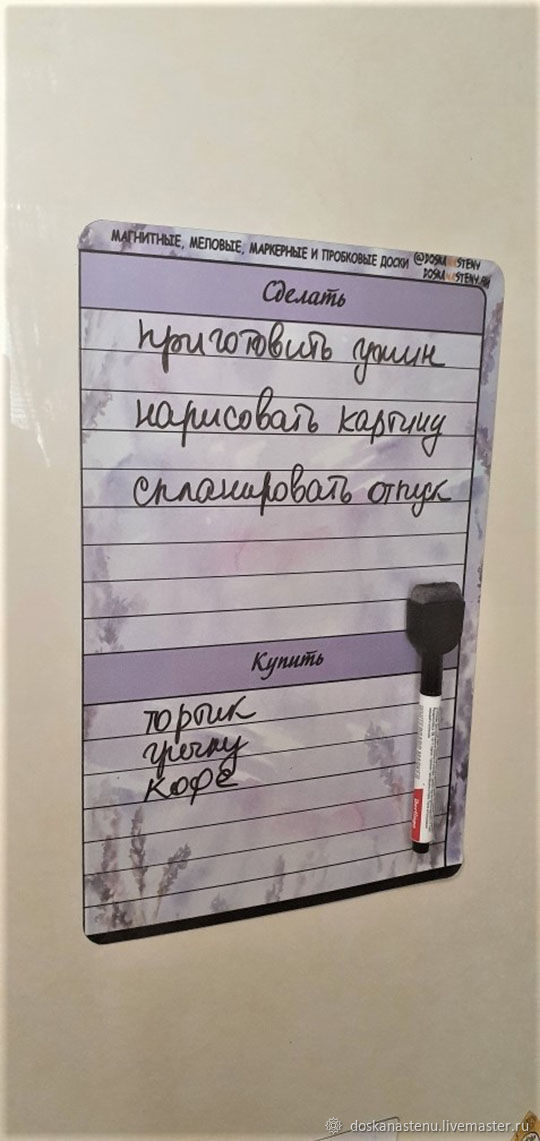 МАГНИТНЫЕ, МЕЛОВЫЕ, МАРКЕРНЫЕ И ПРОБКОВЫЕ ДОСКИ
@DOSKANASTENY
DOSKANASTENY.RU
Сделать
приготовить ужин
нарисовать картину
спланировать отпуск
Купить
тортик
гречку
кофе
doskanastenu.livemaster.ru